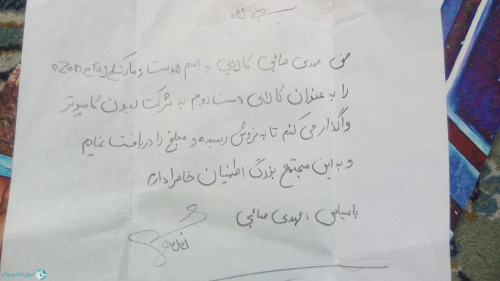 بسمه تعالی
من مهدی صالحی کالایی به اسم هدست و مارکتیگ ozone rage
را به عنوان کالای دست دوم به شرکت لیون کامپیوتر
واگذار می کنم تا به فروش رسیده و مبلغ را دریافت نمایم
و به این مجتمع بزرگ اطمینان خاطر دارم
با سپاس ، مهدی صالحی